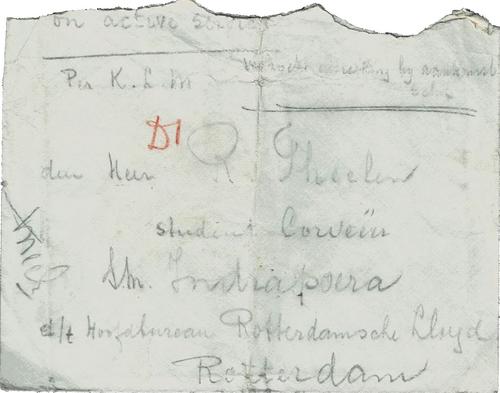 on active service
Per K. L. M
D1
den Heer R. Thoelen
student Corveïn
S.m. Indrapoera
d/t Hoofdbureau Rotterdamsche Lloyd
Rotterdam